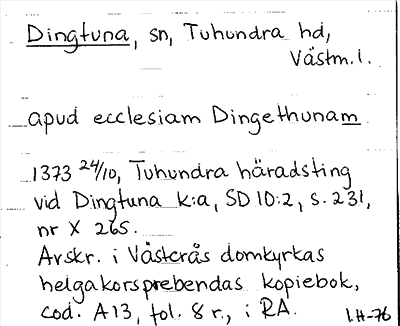 Dingtuna, sn, Tuhundra hd,
Västm. l.
apud ecclesiam Dingethunam
1373 24/10, Tuhundra häradsting
vid Dingtuna k:a, SD 10:2, s. 231,
nr X 265.
Avskr. i Västerås domkyrkas
helgakorsprebendas kopiebok,
cod. A13, fol. 8 r., i RA.
I.H-76